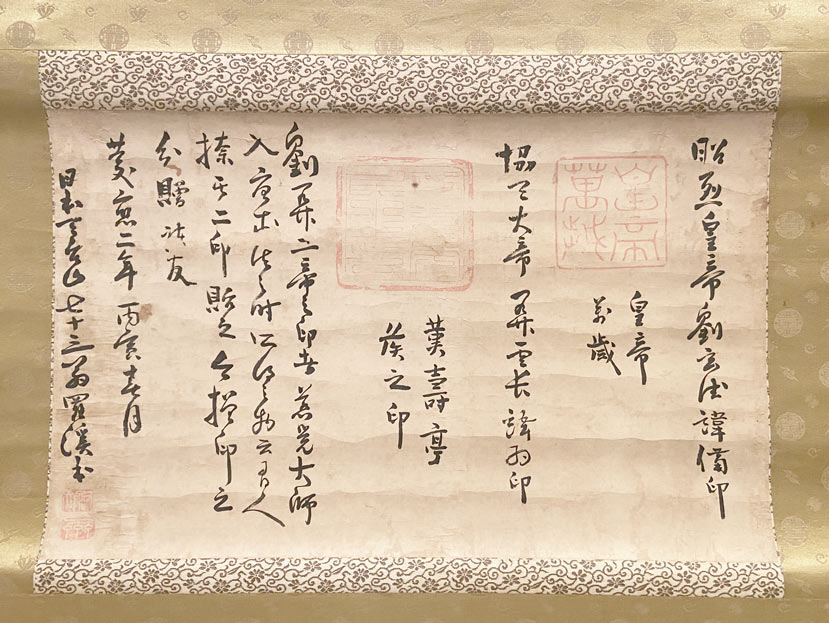 昭烈皇帝劉玄徳諱備印
皇帝
萬歳
協天大帝関雲長諱羽印
漢壽亭
侯之印
劉関二帝之印者慈覚大師
入唐求法之時所得云有人
捺其二印貽之今摺印之
分贈諸友
慶應二年丙寅春月
日本天台山七十三翁羅渓書